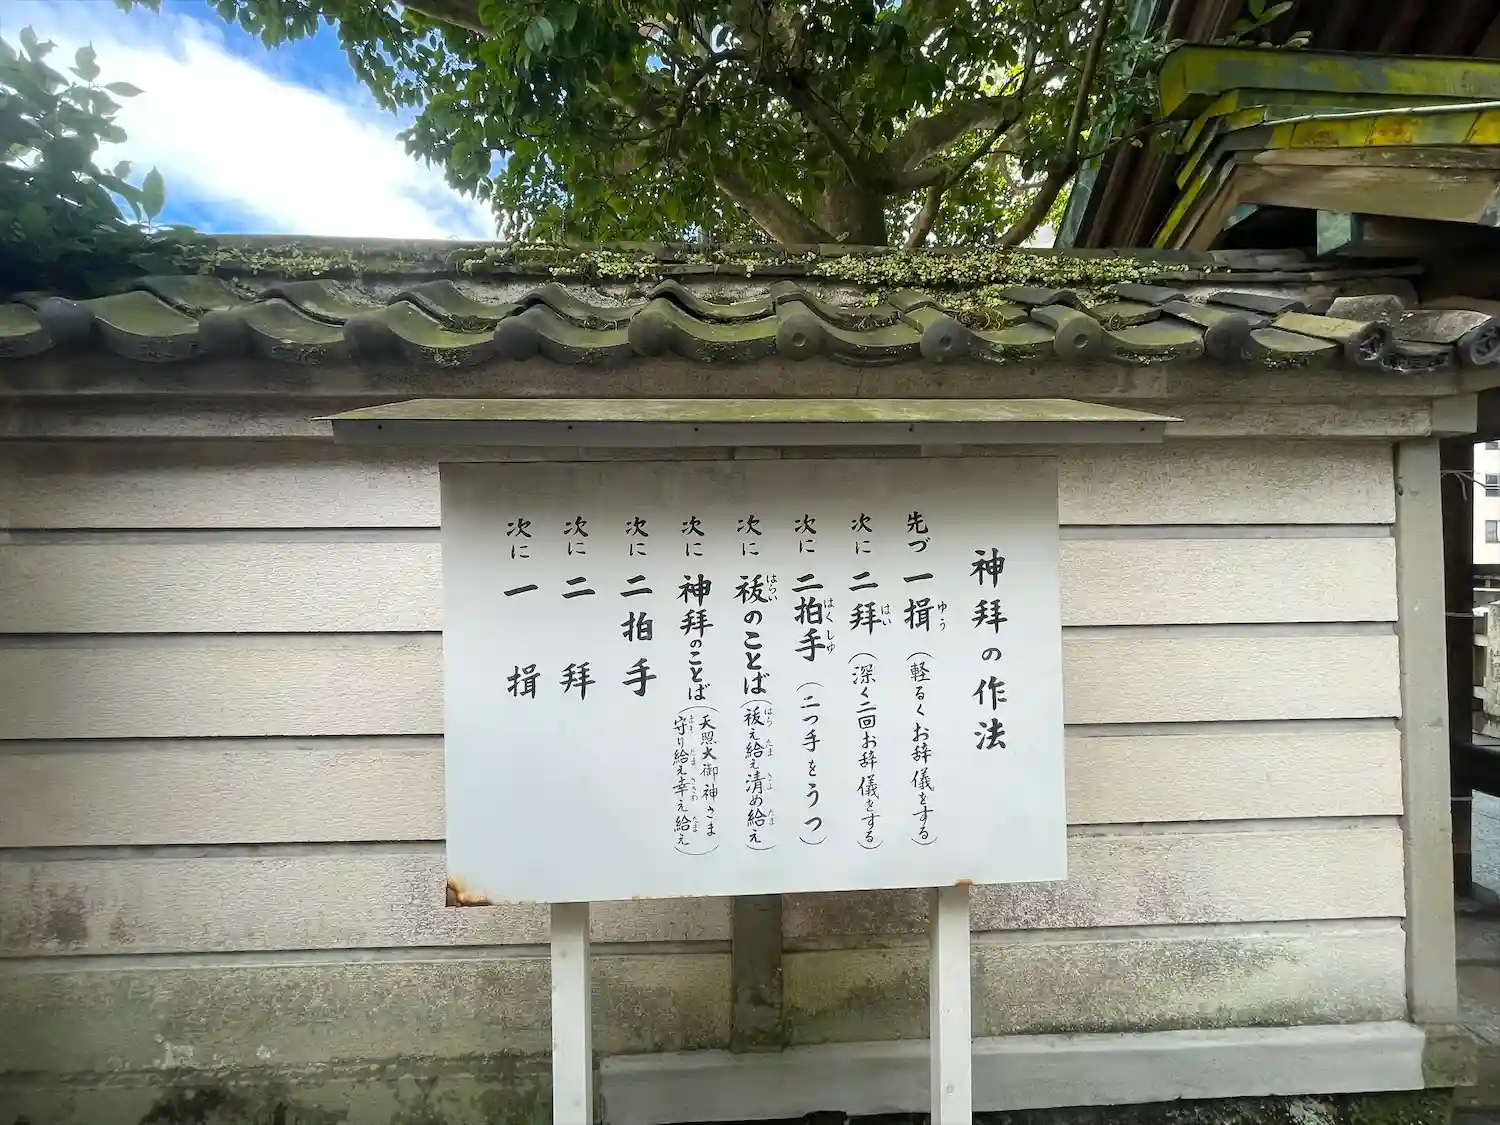 神拝の作法
先づ 一揖（軽るくお辞儀をする）
ゆう
次に 二拝（深く二回お辞儀をする）
はい
次に 二拍手（二つ手をうつ）
はくしゆ
次に 祓のことば（祓え給え清め給え）
はらい
はら たま きよ たま
次に 神拝のことば（天照大御神さま
守り給え幸え給え）
まも たま さきわ たま
次に 二拍手
次に 二拝
次に 一揖